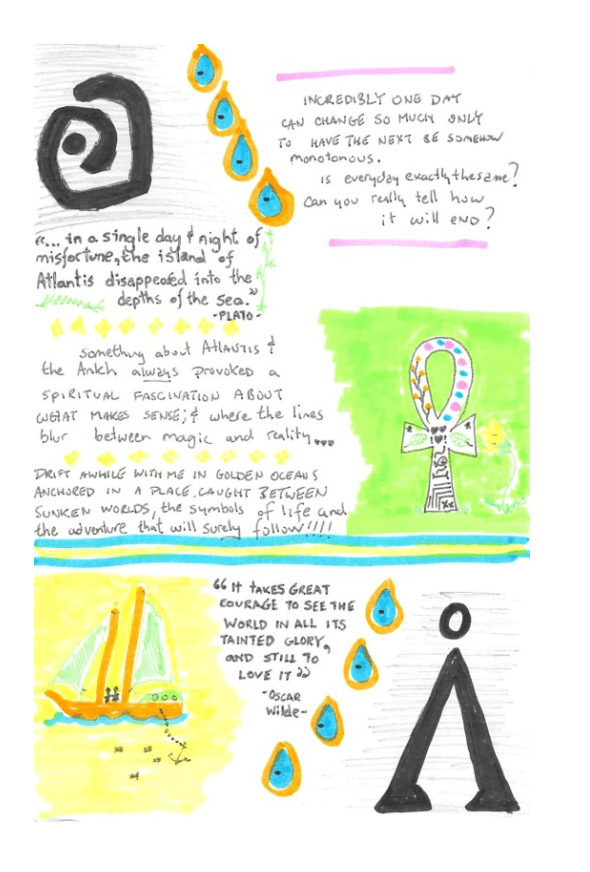 INCREDIBLY ONE DAY
CAN CHANGE SO MUCH ONLY
TO HAVE THE NEXT BE SOMEHOW
monotonous.
is everyday exactly the same?
Can you really tell how
it will end?
"... in a single day & night of
misfortune, the island of
Atlantis disappeared into the
depths of the sea."
-PLATO-
Something about ATLANTIS &
the Ankh always provoked a
SPIRITUAL FASCINATION ABOUT
WHAT MAKES SENSE; & where the lines
blur between magic and reality...
DRIFT AWHILE WITH ME IN GOLDEN OCEANS
ANCHORED IN A PLACE, CAUGHT BETWEEN
SUNKEN WORLDS, the symbols of life and
the adventure that will surely follow!!!!
"IT TAKES GREAT
COURAGE TO SEE THE
WORLD IN ALL ITS
TAINTED GLORY,
AND STILL TO
LOVE IT"
-OSCAR
Wilde-